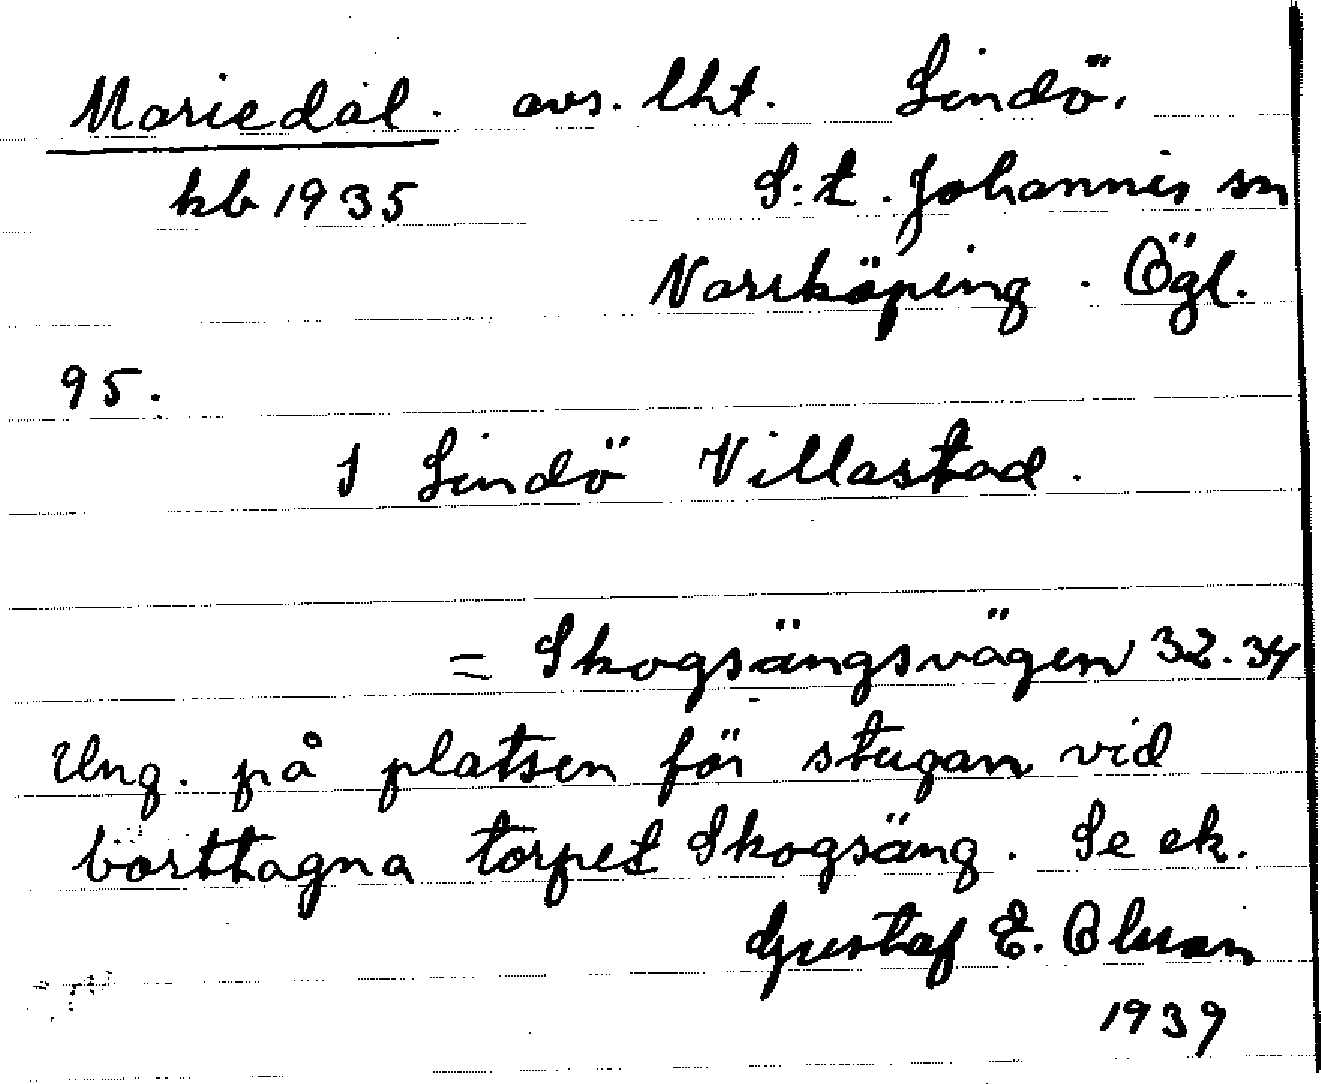 Mariedal. avs. lht. Lindö.
kb 1935 S:t. Johannis sn
Norrköping. Ögl.
95.
I Lindö Villastad.
= Skogsängsvägen 32.34
Ung. på platsen för stugan vid
borttagna torpet Skogsäng. Se ek.
Gustaf E. Olsson
1939